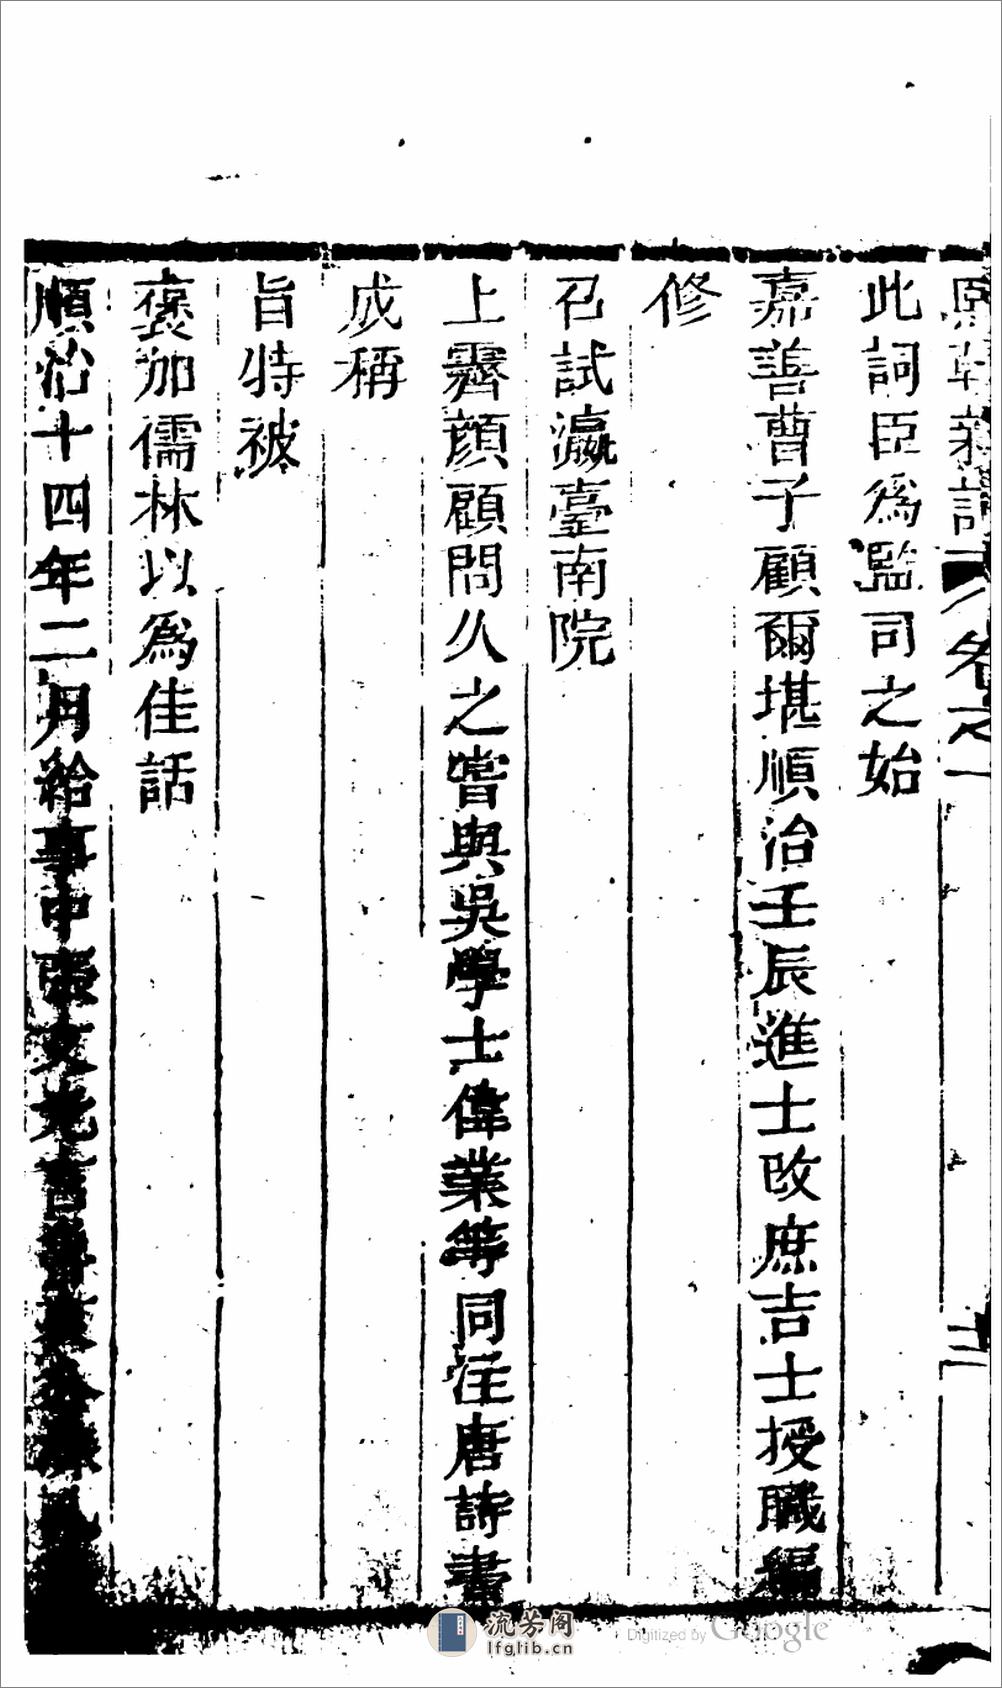 熙朝新語 卷之一 十二
此詞臣爲監司之始
嘉善曹子顧爾堪順治壬辰進士改庶吉士授職編
修
召試瀛臺南院
上霽顏顧問久之嘗與吳學士偉業等同注唐詩書
成稱
旨特被
褒加儒林以爲佳話
順治十四年二月給事中張文光言
流芳阁
lfglib.cn
Digitized by Google